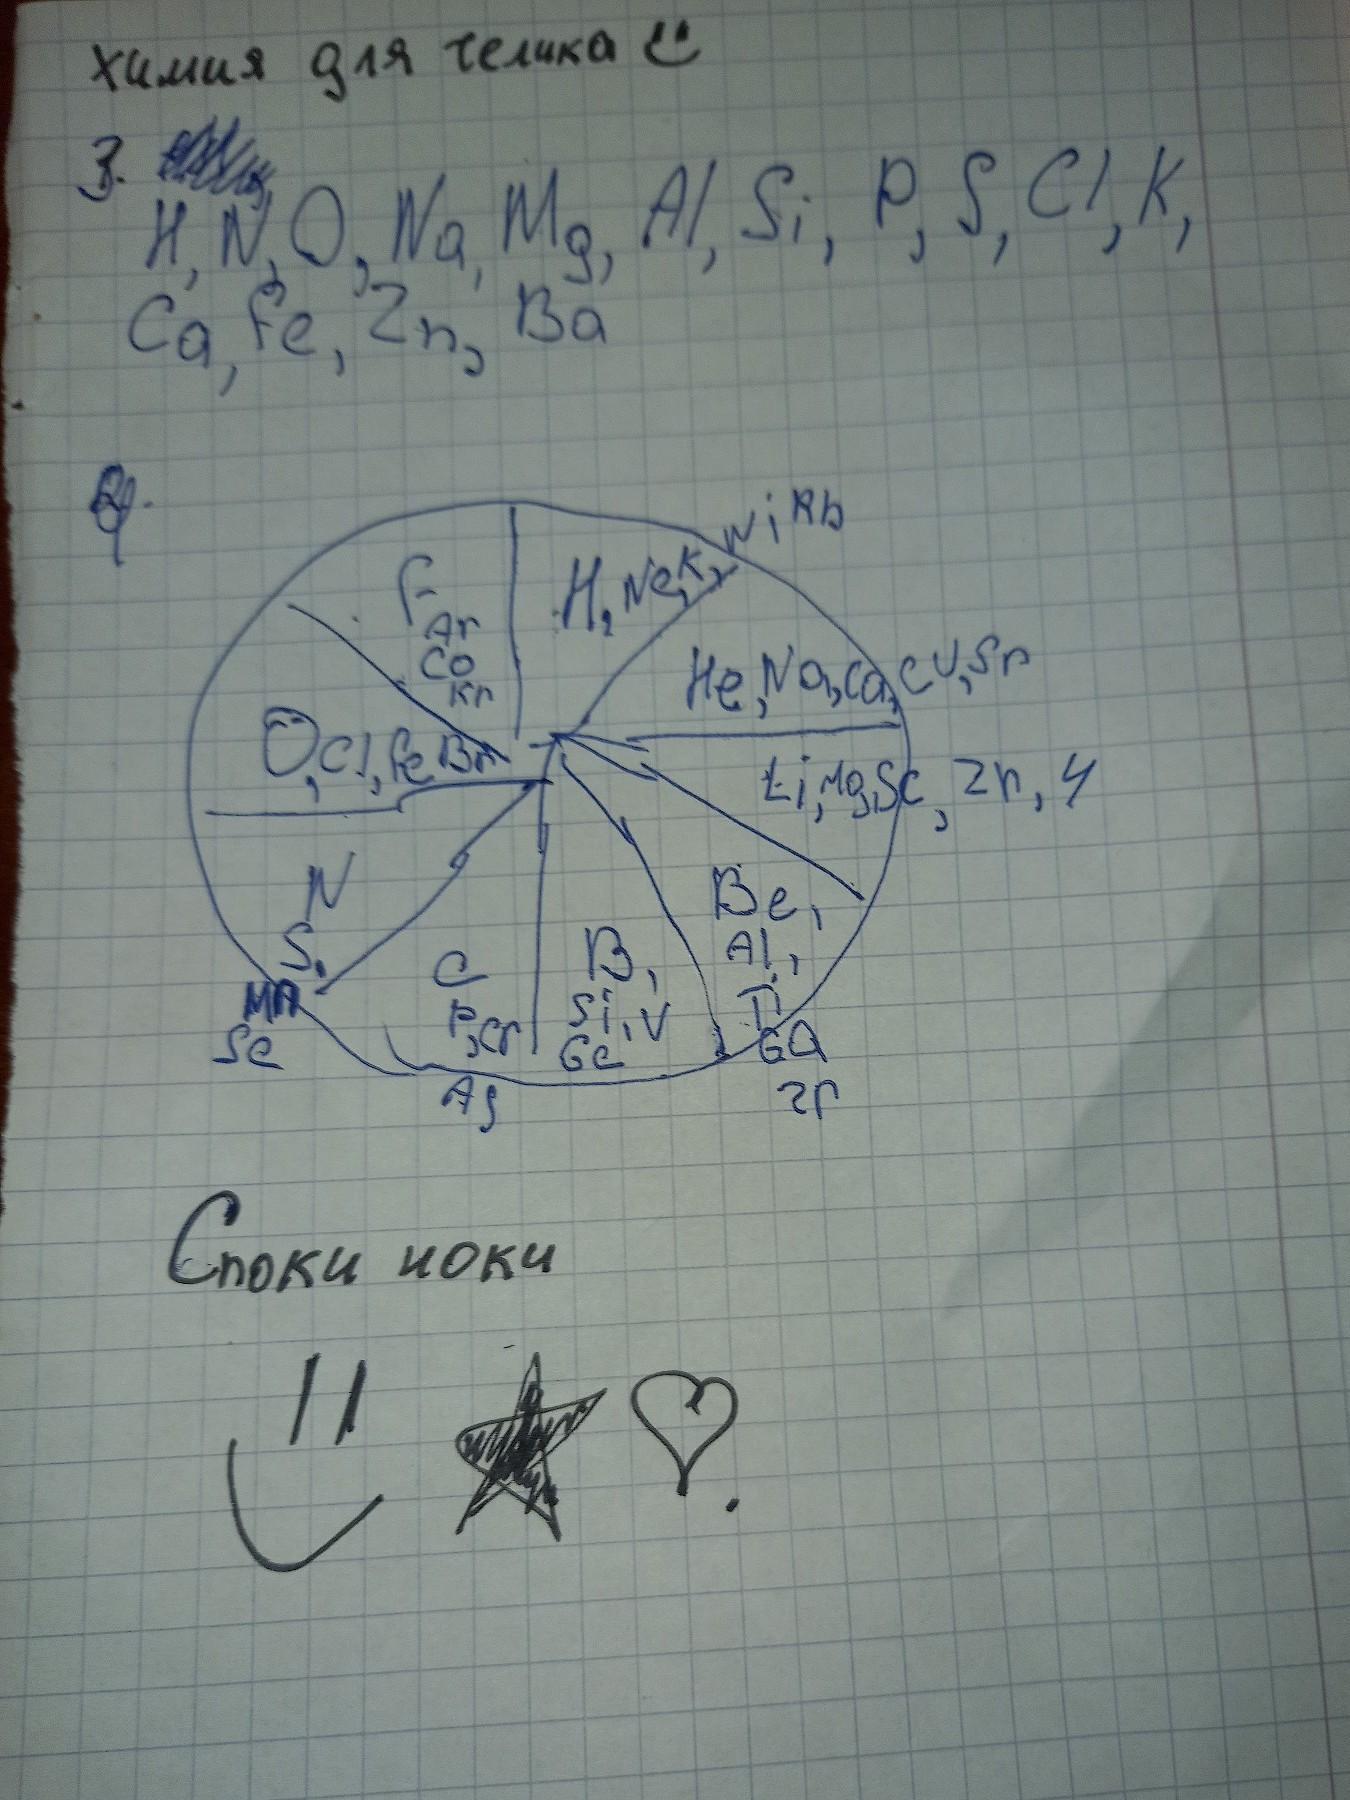 химия для челика
3.
H, N, O, Na, Mg, Al, Si, P, S, Cl, K,
Ca, Fe, Zn, Ba
F
Ar
Co
Kr
H, Ne, K, Ni Rb
He, Na, Ca, Cu, Sr
O, Cl, Fe Br
Li, Mg, Sc, Zn, Y
N
S,
Mn
Se
C
P, Cr
Ag
B,
Si, V
Ge
Be,
Al,
Ti
Ga
Zr
Споки ноки